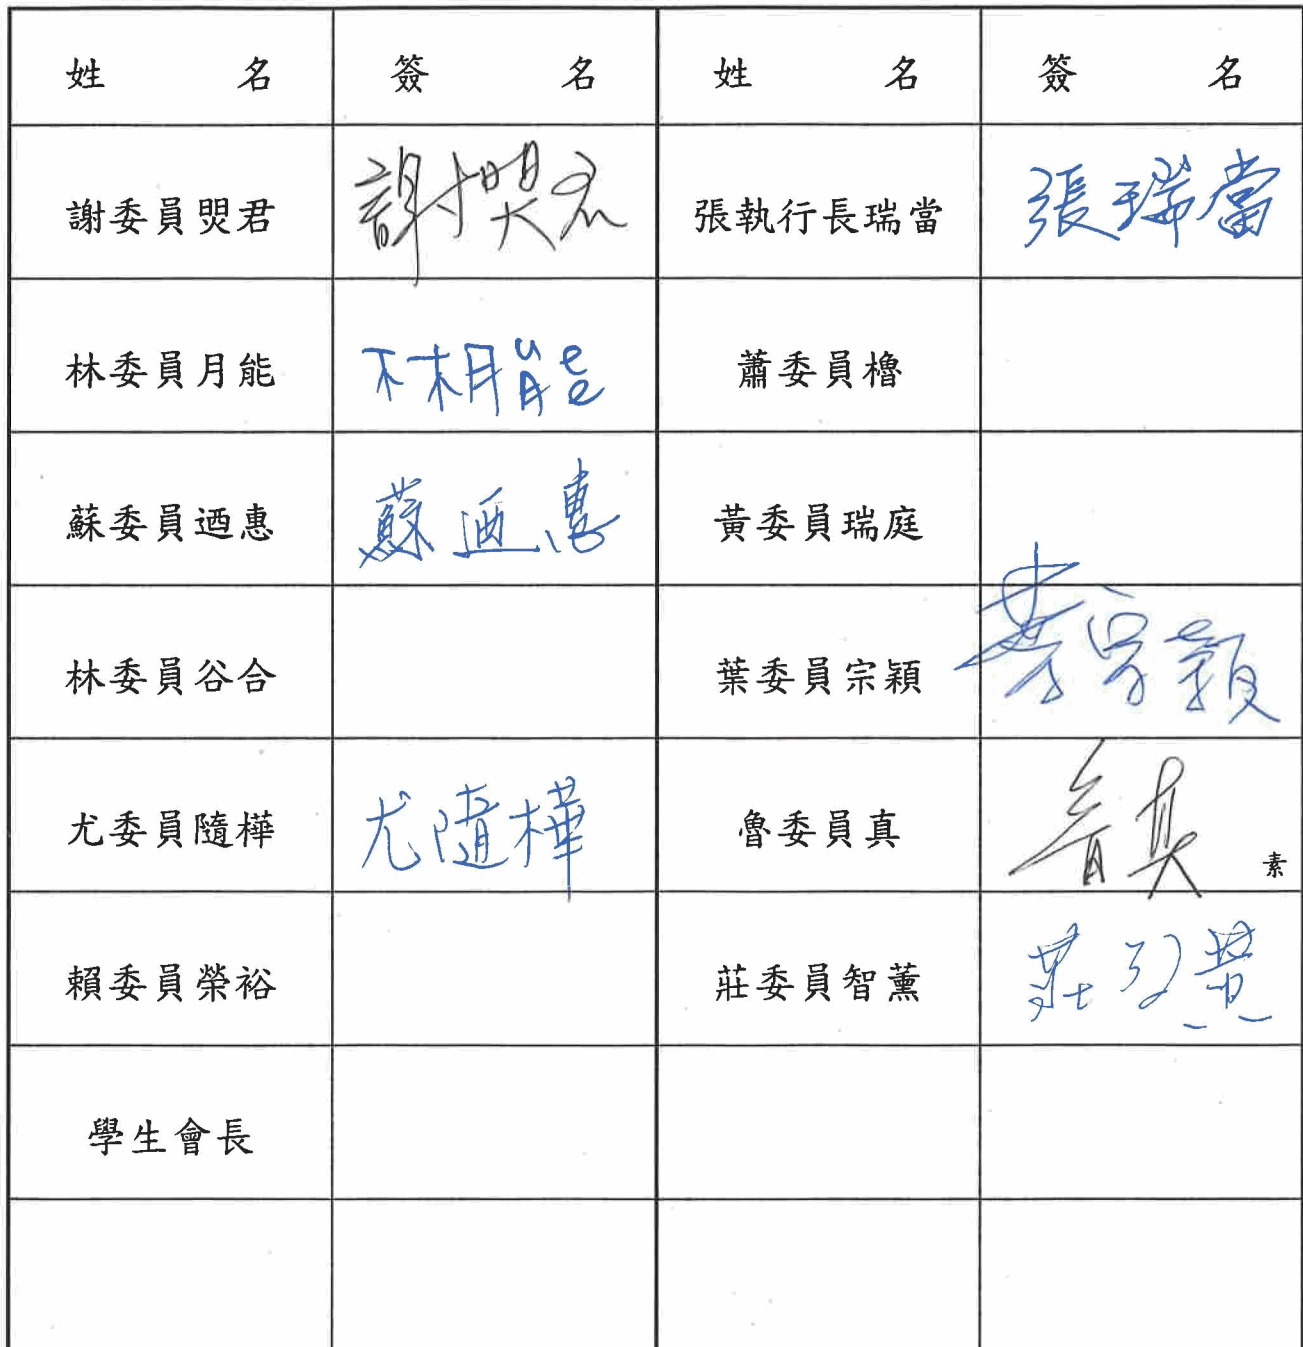 姓名 簽名 姓名 簽名
謝委員煛君 謝煛君 張執行長瑞當 張瑞當
林委員月能 林月能 蕭委員櫓
蘇委員迺惠 蘇迺惠 黃委員瑞庭
林委員谷合 葉委員宗穎 葉宗穎
尤委員隨樺 尤隨樺 魯委員真 魯真 素
賴委員榮裕 莊委員智薰 莊智薰
學生會長